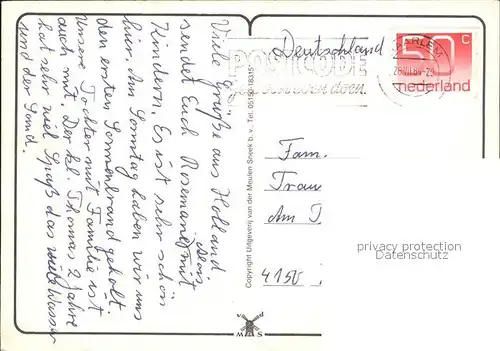 Viele Grüße aus Holland
sendet Euch Rosemarie mit
Alois,
Kindern. Es ist sehr schön
hier. Am Sonntag haben wir uns
den ersten Sonnenbrand geholt.
Unsere Tochter mit Familie ist
auch mit. Der kl. Thomas 2 Jahre
hat sehr viel Spaß das viele Wasser
und der Sand.
Deutschland
HAARLEM
POSTCODE
50 c
nederland
Copyright Uitgeverij van der Meulen Sneek b.v. Tel.
Fam.
Am
4150
v d
M S
privacy protection
Datenschutz